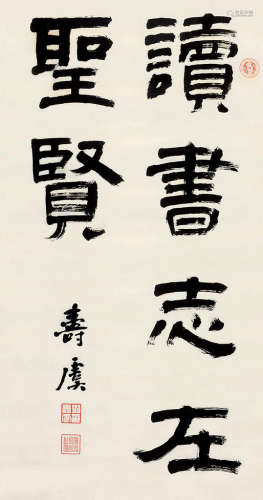 讀書志在
聖賢
壽虞